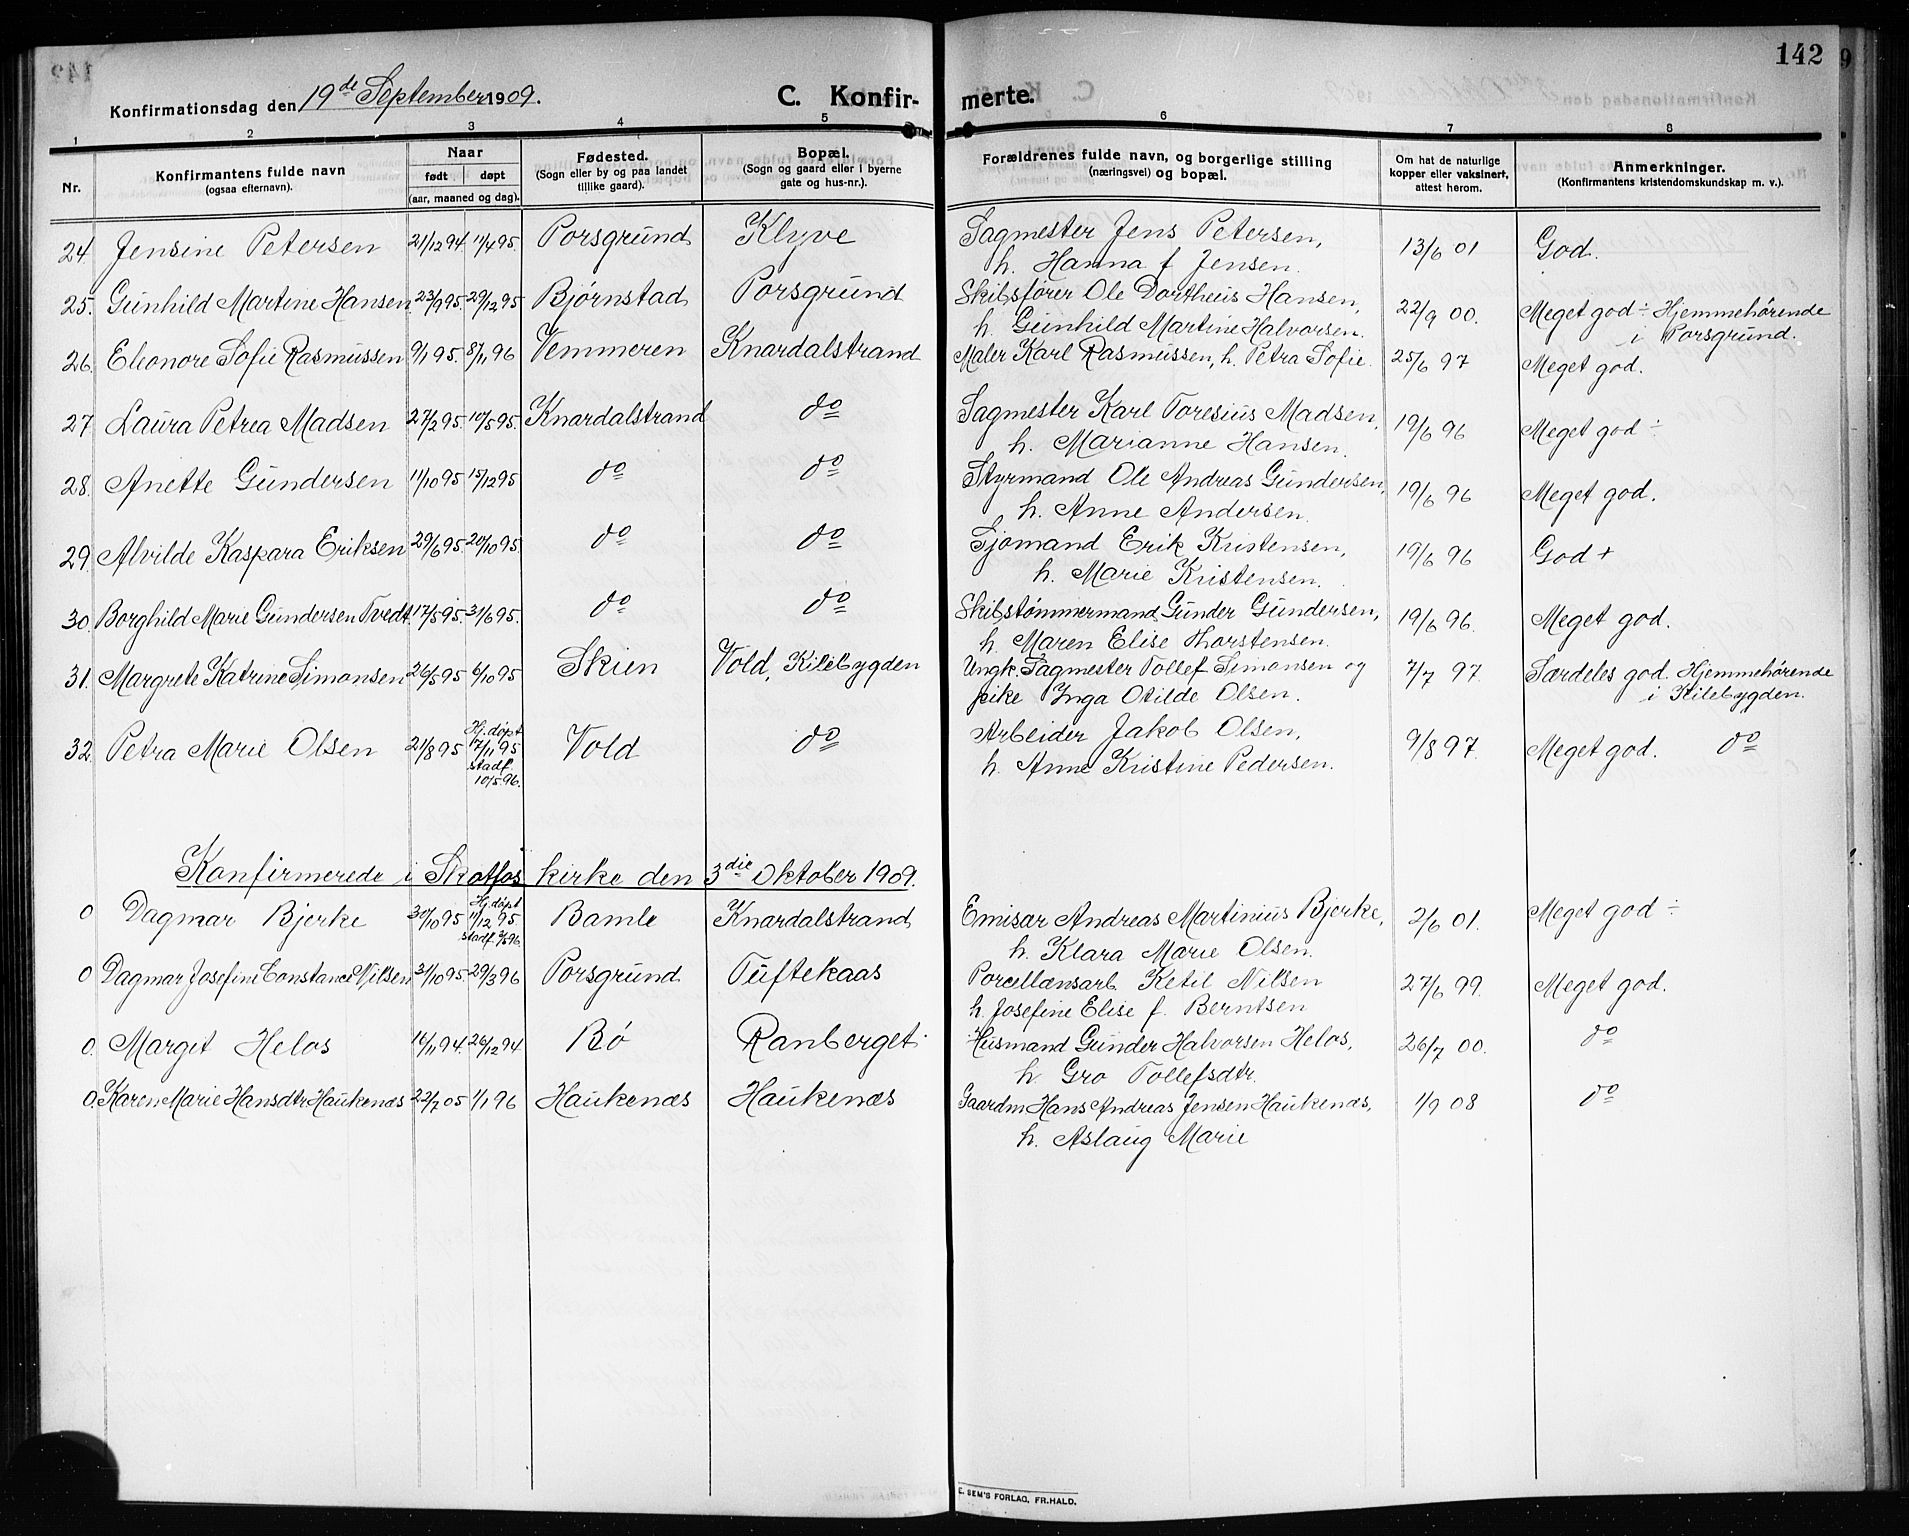 142
Konfirmationsdag den 19de September 1909. C. Konfir- merte.
1 2 3 4 5 6 7 8
Nr. Konfirmantens fulde navn (ogsaa efternavn). Naar født døpt (aar, maaned og dag). Fødested. (Sogn eller by og paa landet tillike gaard). Bopæl. (Sogn og gaard eller i byerne gate og hus-nr.). Forældrenes fulde navn, og borgerlige stilling (næringsvei) og bopæl. Om hat de naturlige kopper eller vaksinert, attest herom. Anmerkninger. (Konfirmantens kristendomskundskap m. v.).
24 Jensine Petersen 21/12 94 17/4 95. Porsgrund Klyve Sagmester Jens Petersen, 13/6 01 God.
h. Hanna f Jensen.
25. Gunhild Martine Hansen 23/9 95. 29/12 95 Bjørnstad Porsgrund Skibsfører Ole Dortheus Hansen, 22/9 00. Meget god ÷ Hjemmehørende
h. Gunhild Martine Halvorsen. i Porsgrund.
26. Eleonore Sofie Rasmussen 9/1 95. 8/11 96 Vemmeren Knardalstrand Maler Karl Rasmussen, h. Petra Sofie. 25/6 97 Meget god.
27 Laura Petrea Madsen 27/2 95. 10/5 95. Knardalstrand do Sagmester Karl Toresius Madsen, 19/6 96 Meget god ÷
h. Marianne Hansen.
28. Anette Gundersen 11/10 95 15/12 95 do do Styrmand Ole Andreas Gundersen, 19/6 96 Meget god.
h. Anne Andersen.
29. Alvilde Kaspara Eriksen 29/6 95. 20/10 95. do do Sjømand Erik Kristensen, 19/6 96 God +
h. Marie Kristensen.
30. Borghild Marie Gundersen Tvedt 17/5 95. 31/6 95. do do Skibstømmermand Gunder Gundersen, 19/6 96. Meget god.
h. Maren Elise Thorstensen.
31. Margrete Katrine Simonsen 26/5 95 6/10 95 Skien Vold, Kilebygden Ungk. Sagmester Tollef Simonsen og 7/7 97. Særdeles god. Hjemmehørende
pike Inga Otilde Olsen. i Kilebygden.
32. Petra Marie Olsen 21/8 95 Hj. døpt 17/11 95 stadf. 10/5 96. Vold do Arbeider Jakob Olsen, 9/8 97. Meget god. do
h. Anne Kristine Pedersen.
Konfirmerede i Skotfos kirke den 3die Oktober 1909.
0 Dagmar Bjerke 30/10 95 Hj. døpt 11/12 95 stadf. 3/5 96. Bamle Knardalstrand Emisær Andreas Martinius Bjerke, 2/6 01. Meget god ÷
h. Klara Marie Olsen.
0 Dagmar Josefine Constance Nilsen 31/10 95. 29/3 96 Porsgrund Tuftekaas Porcellænsarb Ketil Nilsen 27/6 99. Meget god.
h. Josefine Elise f. Berntsen
0. Marget Helos 14/11 94. 26/12 94. Bø Ranberget. Husmand Gunder Halvorsen Helos, 26/7 00. do
h. Gro Tollefsdtr.
0. Karen Marie Hansdtr Haukenæs 22/7 05 1/1 96 Haukenæs Haukenæs Gaardm Hans Andreas Jensen Haukenæs, 1/9 08 do
h. Aslaug Marie
E. SEM'S FORLAG, FR.HALD.